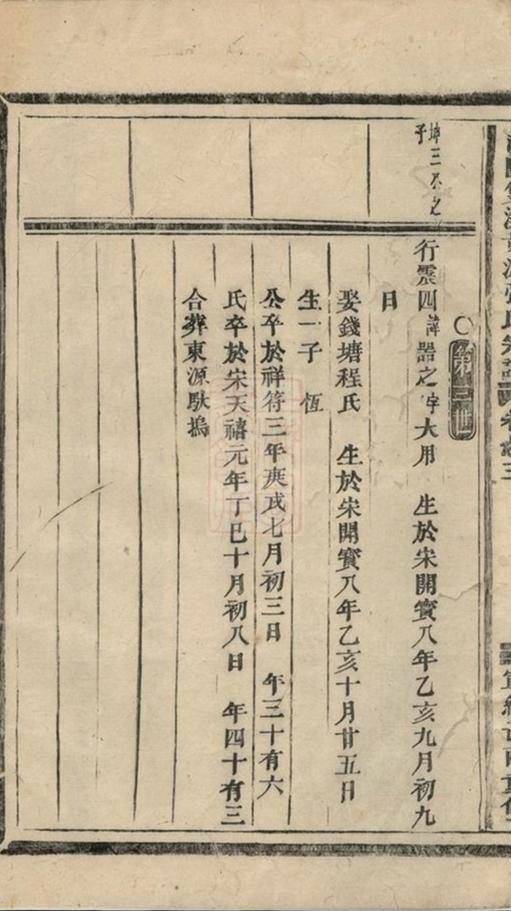 ○第三世
坤三公之
子
行震四諱器之字大用　生於宋開寶八年乙亥九月初九
日
娶錢塘程氏　生於宋開寶八年乙亥十月廿五日
生一子　恆
公卒於祥符三年庚戌七月初三日　年三十有六
氏卒於宋天禧元年丁巳十月初八日　年四十有三
合葬東源馱塢